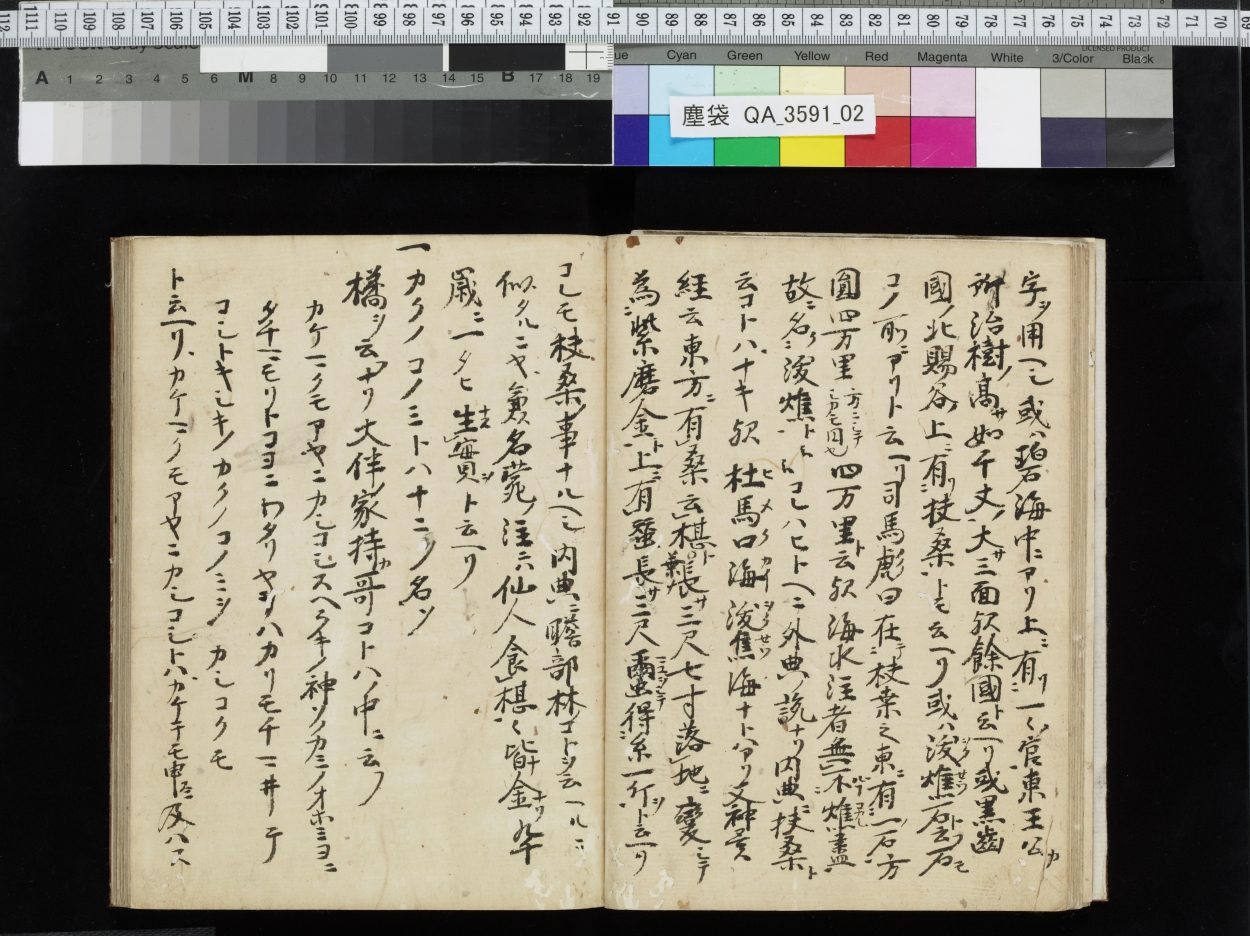 字ヲ用ヘシ或ハ碧海中ニアリ上ニ有リ一宮東王公カ
所治樹ノ高サ如千丈大サ三面欤餘國ト云ヘリ或黒齒
國ノ北賜谷ノ上ニ有リ扶桑トモ云ヘリ或ハ沃燋石云石モ
コノ所ニアリト云ヘリ司馬彪曰在テ扶桒之東ニ有一石方
圓四万里四万里ト云欤海水注者無不燋盡
故ニ名ニ沃燋トコレハヒトヘニ外典ノ説ナリ内典ニ扶桑ト
云コトハナキ欤杜馬口海沃焦海ナトハアリ又神異
經云東方ニ有桑云椹ト長サ三尺七寸落地ニ變シテ
為紫磨金ト上ニ有蠶長サ二尺繭得糸一斤ト云ヘリ
コレモ扶桑ノ事ナルヘシ内典ニ瞻部林ノコトヲ云ヘルニ
似タルニヤ名苑ノ注云仙人食椹ヲ皆金ナリ九千
嵗ニ一タヒ生實ヲト云ヘリ
一カクノコノミトハナニノ名ソ
橘ヲ云ナリ大伴ノ家持カ哥コトハノ中ニ云ク
カケマクモアヤニカシコシスヘラキノ神ノオホミヨニ
タチマモリトコヨニワタリヤホコハカリモチマ井テ
コシトキシキノカクノコノミヲカシコクモ
ト云ヘリカケマクモアヤニカシコシトハカケテモ申スニ及ハス
塵袋 QA_3591_02
A 1 2 3 4 5 6 M 8 9 10 11 12 13 14 15 B 17 18 19
Cyan Green Yellow Red Magenta White 3/Color Black
LICENSED PRODUCT
111 110 109 108 107 106 105 104 103 102 101 100 99 98 97 96 95 94 93 92 91 90 89 88 87 86 85 84 83 82 81 80 79 78 77 76 75 74 73 72 71 70 69